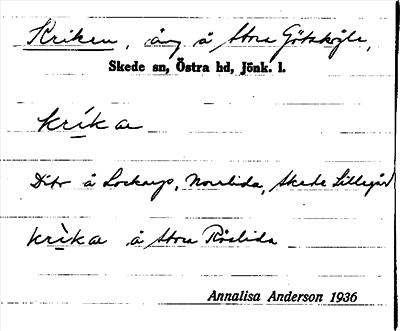 Kriken, äng å Stora Götskögle,
Skede sn, Östra hd, Jönk. l.
krík ae
Dito å Lockarp, Norrlida, Skede Lillegård
krìk ae å Stora Röslida
Annalisa Anderson 1936